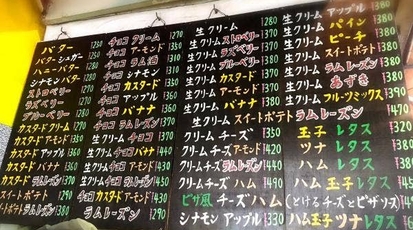 バター ¥250
バターシュガー ¥280
ハニーバター
シナモンバター
ストロベリー
ラズベリー
ブルーベリー
カスタードクリーム
カスタードチョコ
カスタードアップル
カスタードバナナ
カスタードアーモンド
カスタードラムレーズン
スイートポテト
スイートポテトラムレーズン ¥380
チョコクリーム
チョコアーモンド
チョコラム酒
チョコシナモン
チョコカスタード
チョコアップル
チョコバナナ
チョコラムレーズン
生クリームチョコ
生クリームチョコバナナ
生クリームチョコアーモンド
生クリームチョコラムレーズン
アーモンド
ラムレーズン ¥290
生クリーム ¥280
生クリームストロベリー
生クリームラズベリー
生クリームブルーベリー
生クリームカスタード
生クリームアーモンド
生クリームバナナ ¥380
生クリームスイートポテトラムレーズン
クリームチーズ ¥350
クリームチーズラムレーズン
クリームチーズバナナ
クリームチーズハム ¥490
ピザ風チーズハム(とけるチーズとピザソース)
シナモンアップル ¥330
生クリームアップル ¥380
生クリームパイン ¥380
生クリームピーチ ¥380
生クリームスイートポテト
生クリームラムレーズン
生クリームあずき
生クリームフルーツミックス
玉子レタス
ツナレタス
ハムレタス
ハム玉子レタス
ハムツナレタス
ハム玉子ツナレタス